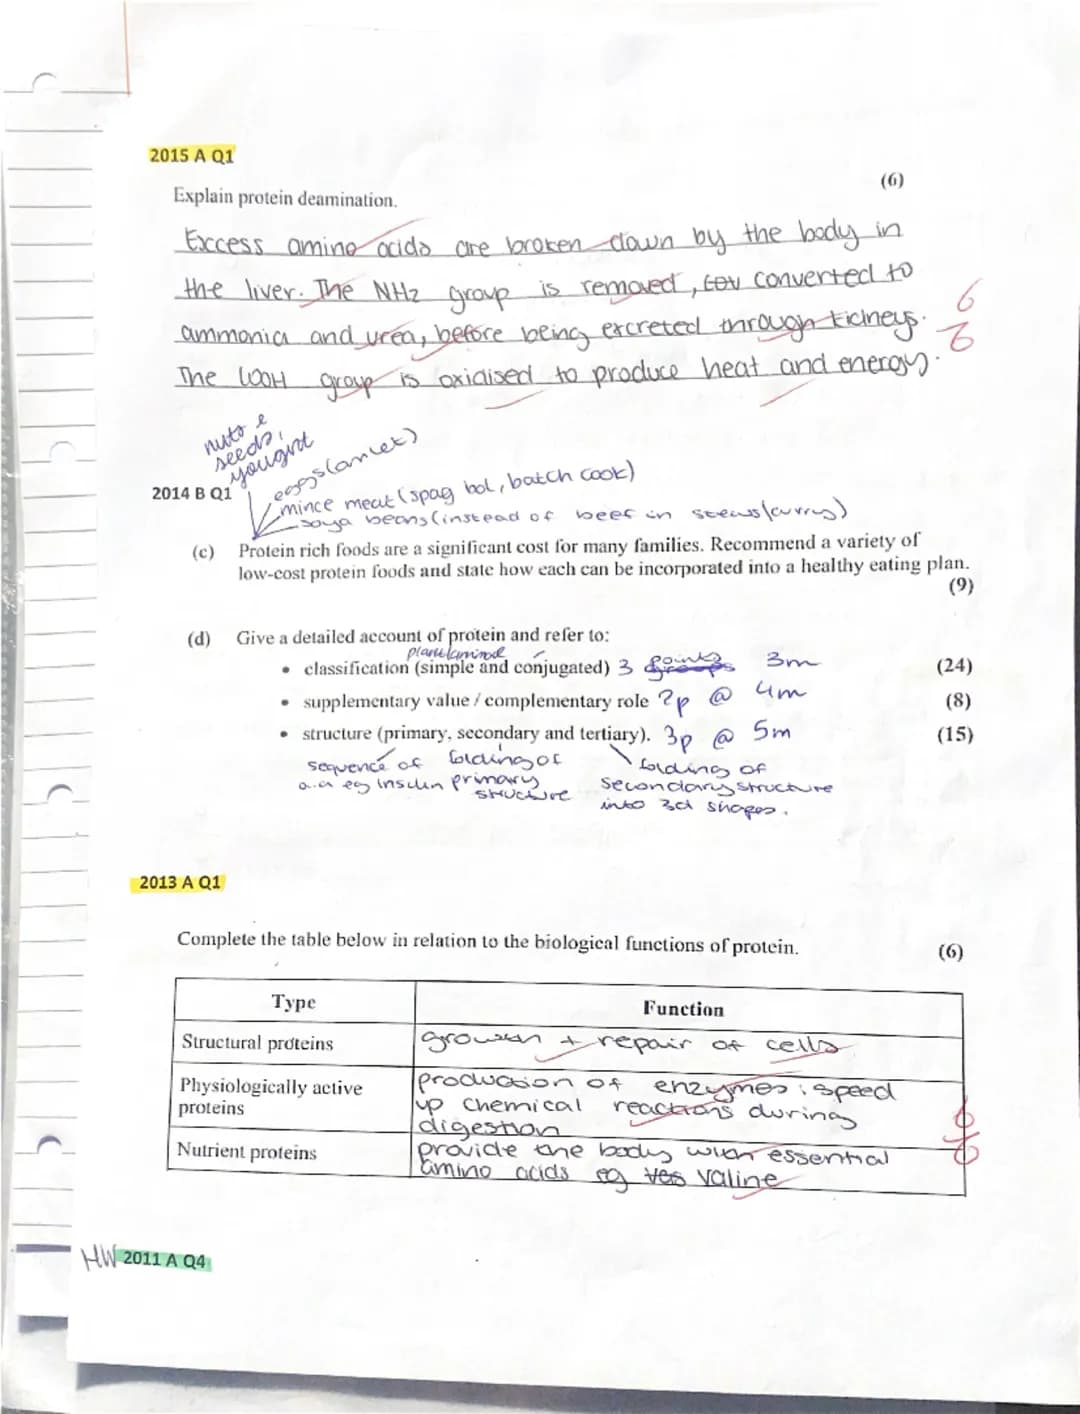 2015 A Q1
(6)
Explain protein deamination.
Excess amino acids are broken down by the body in
the liver. The NH2 group is removed, converted to
ammonia and urea, before being excreted through kidneys.
6
6
The COOH group is oxidised to produce heat and energy.
nuts &
seeds,
yougurt
eggs (omlet)
2014 B Q1
mince meat (spag bol, batch cook)
soya beans (instead of beef in stews/curry)
(c) Protein rich foods are a significant cost for many families. Recommend a variety of
low-cost protein foods and state how each can be incorporated into a healthy eating plan.
(9)
(d) Give a detailed account of protein and refer to:
plant/animal
• classification (simple and conjugated) 3 points groups 3m (24)
• supplementary value / complementary role 2p @ 4m (8)
• structure (primary, secondary and tertiary). 3p @ 5m (15)
sequence of folding of folding of
a.a eg insulin primary secondary structure
structure into 3d shapes.
2013 A Q1
Complete the table below in relation to the biological functions of protein. (6)
Type Function
Structural proteins growth + repair of cells
Physiologically active production of enzymes: speed
proteins up chemical reactions during
digestion
6
6
Nutrient proteins provide the body with essential
amino acids eg valine
HW 2011 A Q4